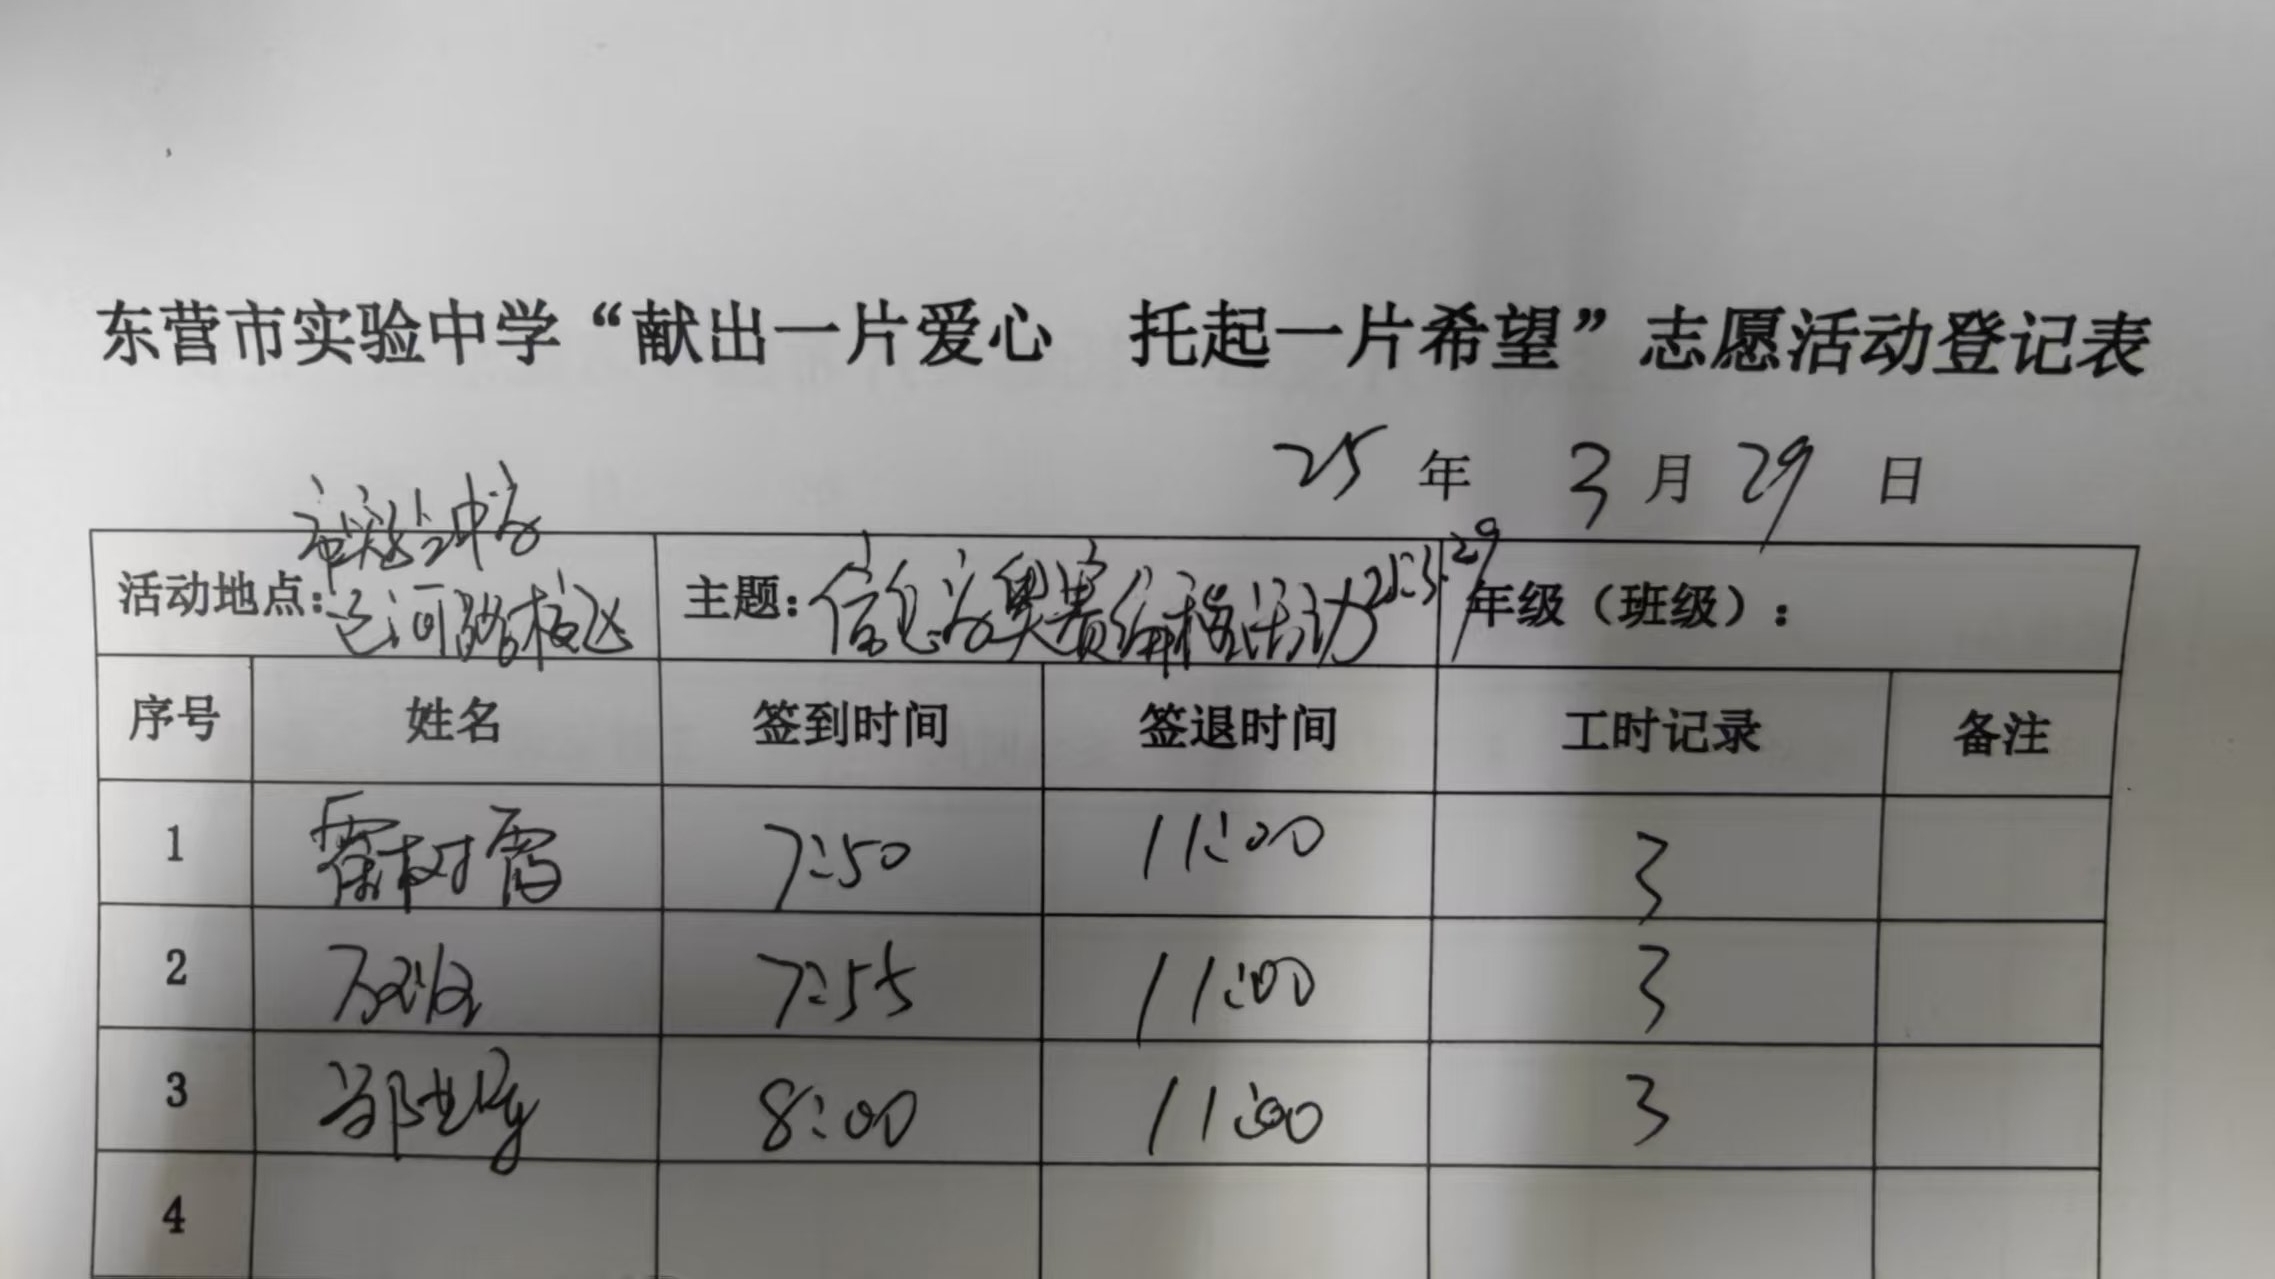 东营市实验中学“献出一片爱心 托起一片希望”志愿活动登记表
25年3月29日
活动地点：市实验中学
河路校区
主题：信息学奥赛编程活动25.3.29
年级（班级）：
序号 姓名 签到时间 签退时间 工时记录 备注
1 霍树 7:50 11:00 3
2 7:55 11:00 3
3 8:00 11:00 3
4